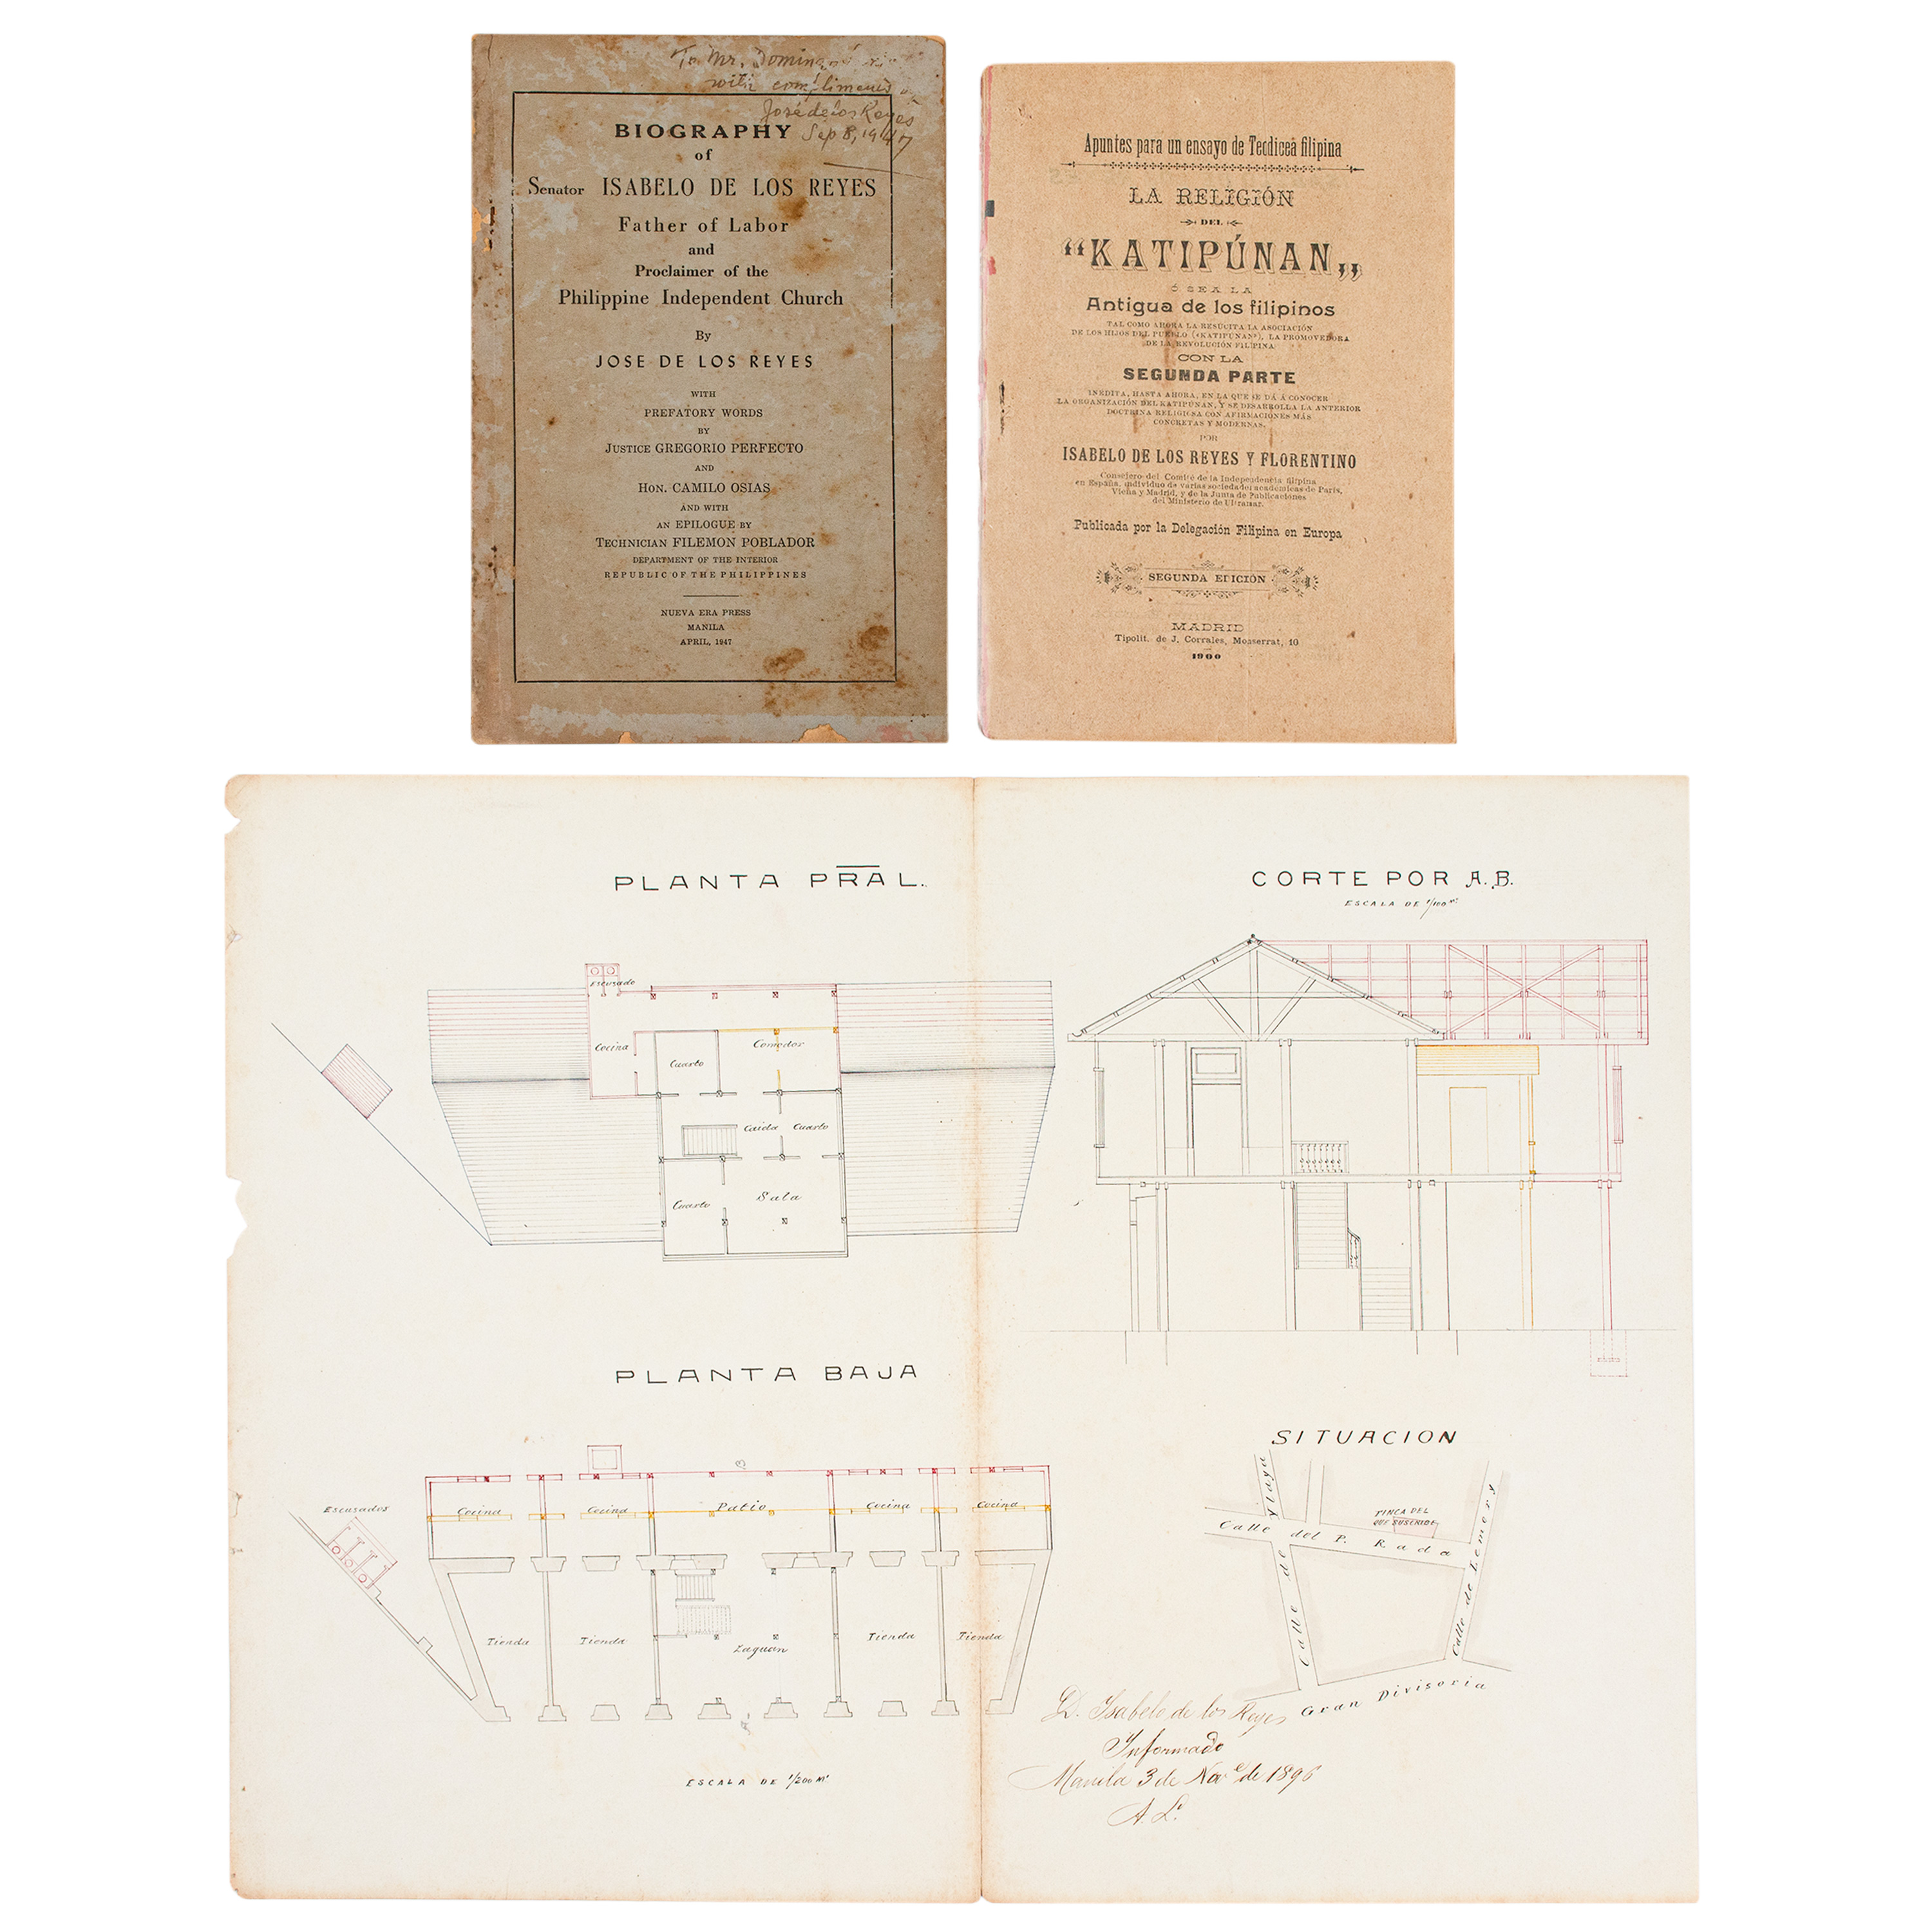 To Mr. Domingo
with compliments
José de los Reyes
Sep 8, 1947
BIOGRAPHY
of
Senator ISABELO DE LOS REYES
Father of Labor
and
Proclaimer of the
Philippine Independent Church
By
JOSE DE LOS REYES
WITH
PREFATORY WORDS
BY
JUSTICE GREGORIO PERFECTO
AND
HON. CAMILO OSIAS
AND WITH
AN EPILOGUE BY
TECHNICIAN FILEMON POBLADOR
DEPARTMENT OF THE INTERIOR
REPUBLIC OF THE PHILIPPINES
NUEVA ERA PRESS
MANILA
APRIL, 1947
Apuntes para un ensayo de Teodicea filipina
LA RELIGIÓN
DEL
“KATIPÚNAN„
Ó SEA LA
Antigua de los filipinos
TAL COMO AHORA LA RESUCITA LA ASOCIACIÓN
DE LOS HIJOS DEL PUEBLO («KATIPUNAN»), LA PROMOVEDORA
DE LA REVOLUCIÓN FILIPINA
CON LA
SEGUNDA PARTE
INÉDITA, HASTA AHORA, EN LA QUE SE DÁ Á CONOCER
LA ORGANIZACIÓN DEL KATIPÚNAN, Y SE DESARROLLA LA ANTERIOR
DOCTRINA RELIGIOSA CON AFIRMACIONES MÁS
CONCRETAS Y MODERNAS.
POR
ISABELO DE LOS REYES Y FLORENTINO
Consejero del Comité de la Independencia filipina
en España, individuo de varias sociedades académicas de París,
Viena y Madrid, y de la Junta de Publicaciones
del Ministerio de Ultramar.
Publicada por la Delegación Filipina en Europa
SEGUNDA EDICIÓN
MADRID
Tipolit. de J. Corrales, Monserrat, 10
1900
PLANTA PRAL.
Escusado
Cocina
Cuarto
Comedor
Caida
Cuarto
Cuarto
Sala
CORTE POR A.B.
ESCALA DE 1/100 M.
PLANTA BAJA
Escusados
Cocina
Cocina
Patio
Cocina
Cocina
Tienda
Tienda
Zaguan
Tienda
Tienda
ESCALA DE 1/200 M.
SITUACION
Calle de Ylaya
FINCA DEL
QUE SUSCRIBE
Calle del P. Rada
Calle de Lemery
Gran Divisoria
D. Isabelo de los Reyes
Informado
Manila 3 de Nov.e de 1896
A. L.